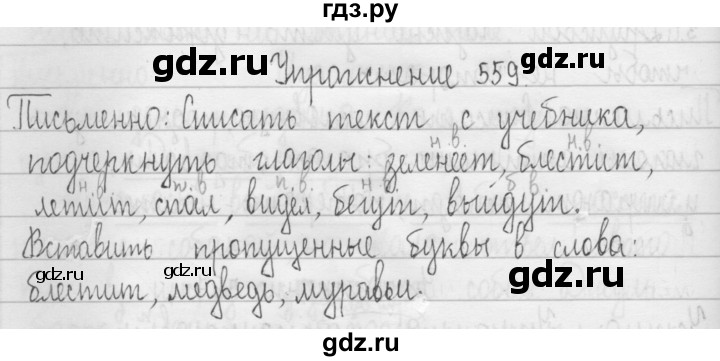 гдз.ру
gdz.ru gdz.ru
Упражнение 559.
Письменно: Списать текст с учебника,
gdz.ru gdz.ru
подчеркнуть глаголы: зеленеет, блестит,
н.в. н.в.
летит, спал, видел, бегут, выйдут.
н.в. п.в. п.в. н.в. б.в.
Вставить пропущенные буквы в слова:
gdz.ru gdz.ru
блестит, медведь, муравьи.
gdz.ru